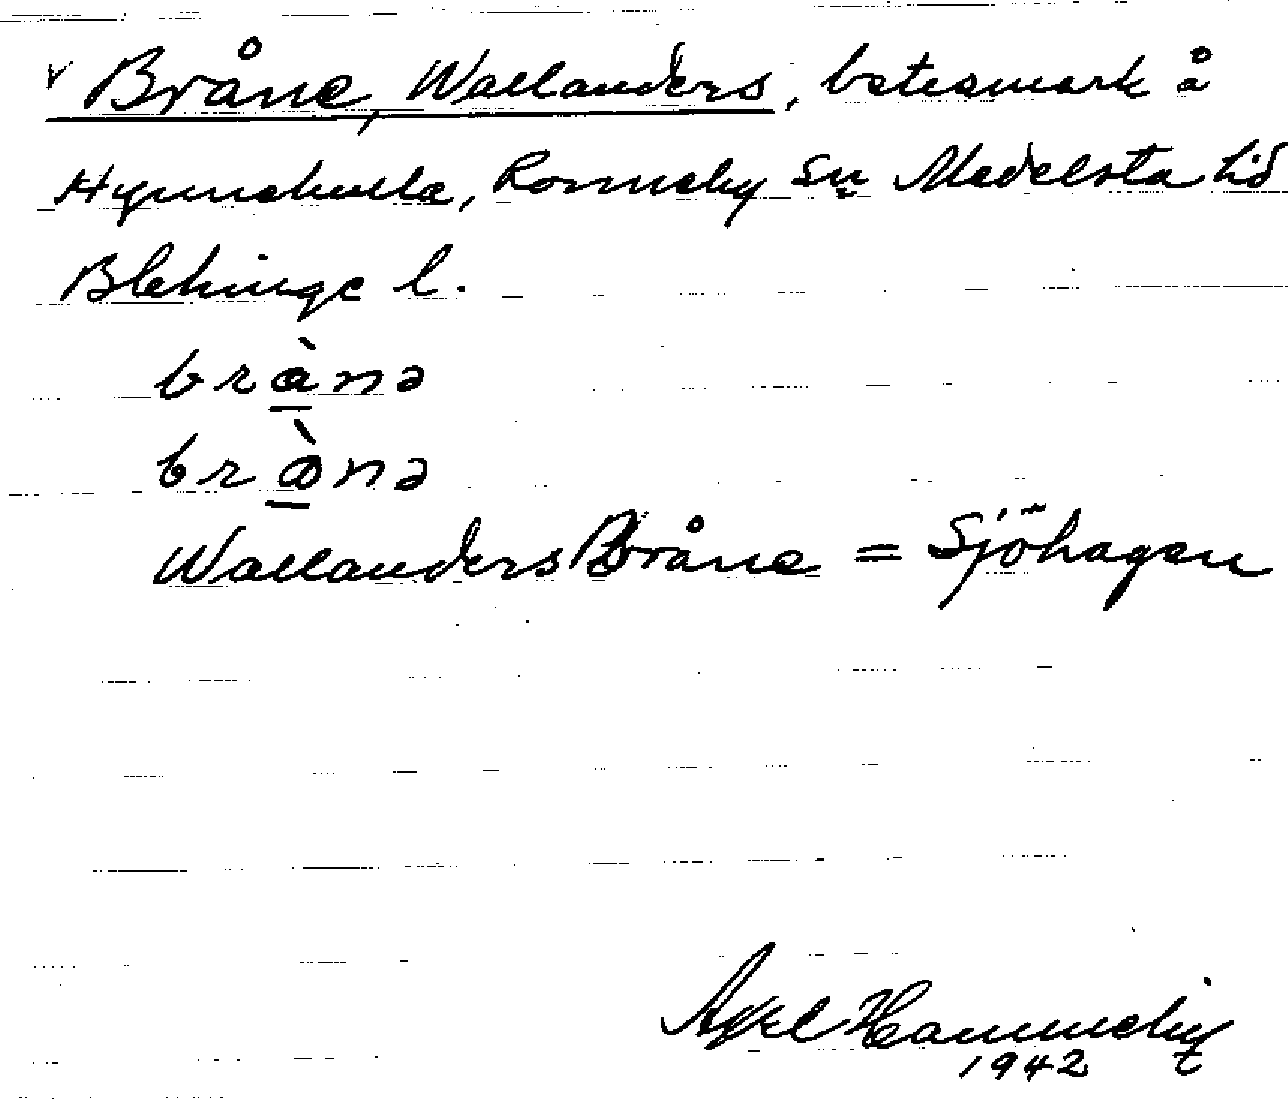 v Bråne, Wallanders, betesmark å
Hynnekulla, Ronneby sn Medelsta hd
Blekinge l.
brànə
brɷ̀nə
Wallanders Bråne = Sjöhagen
Axel
1942